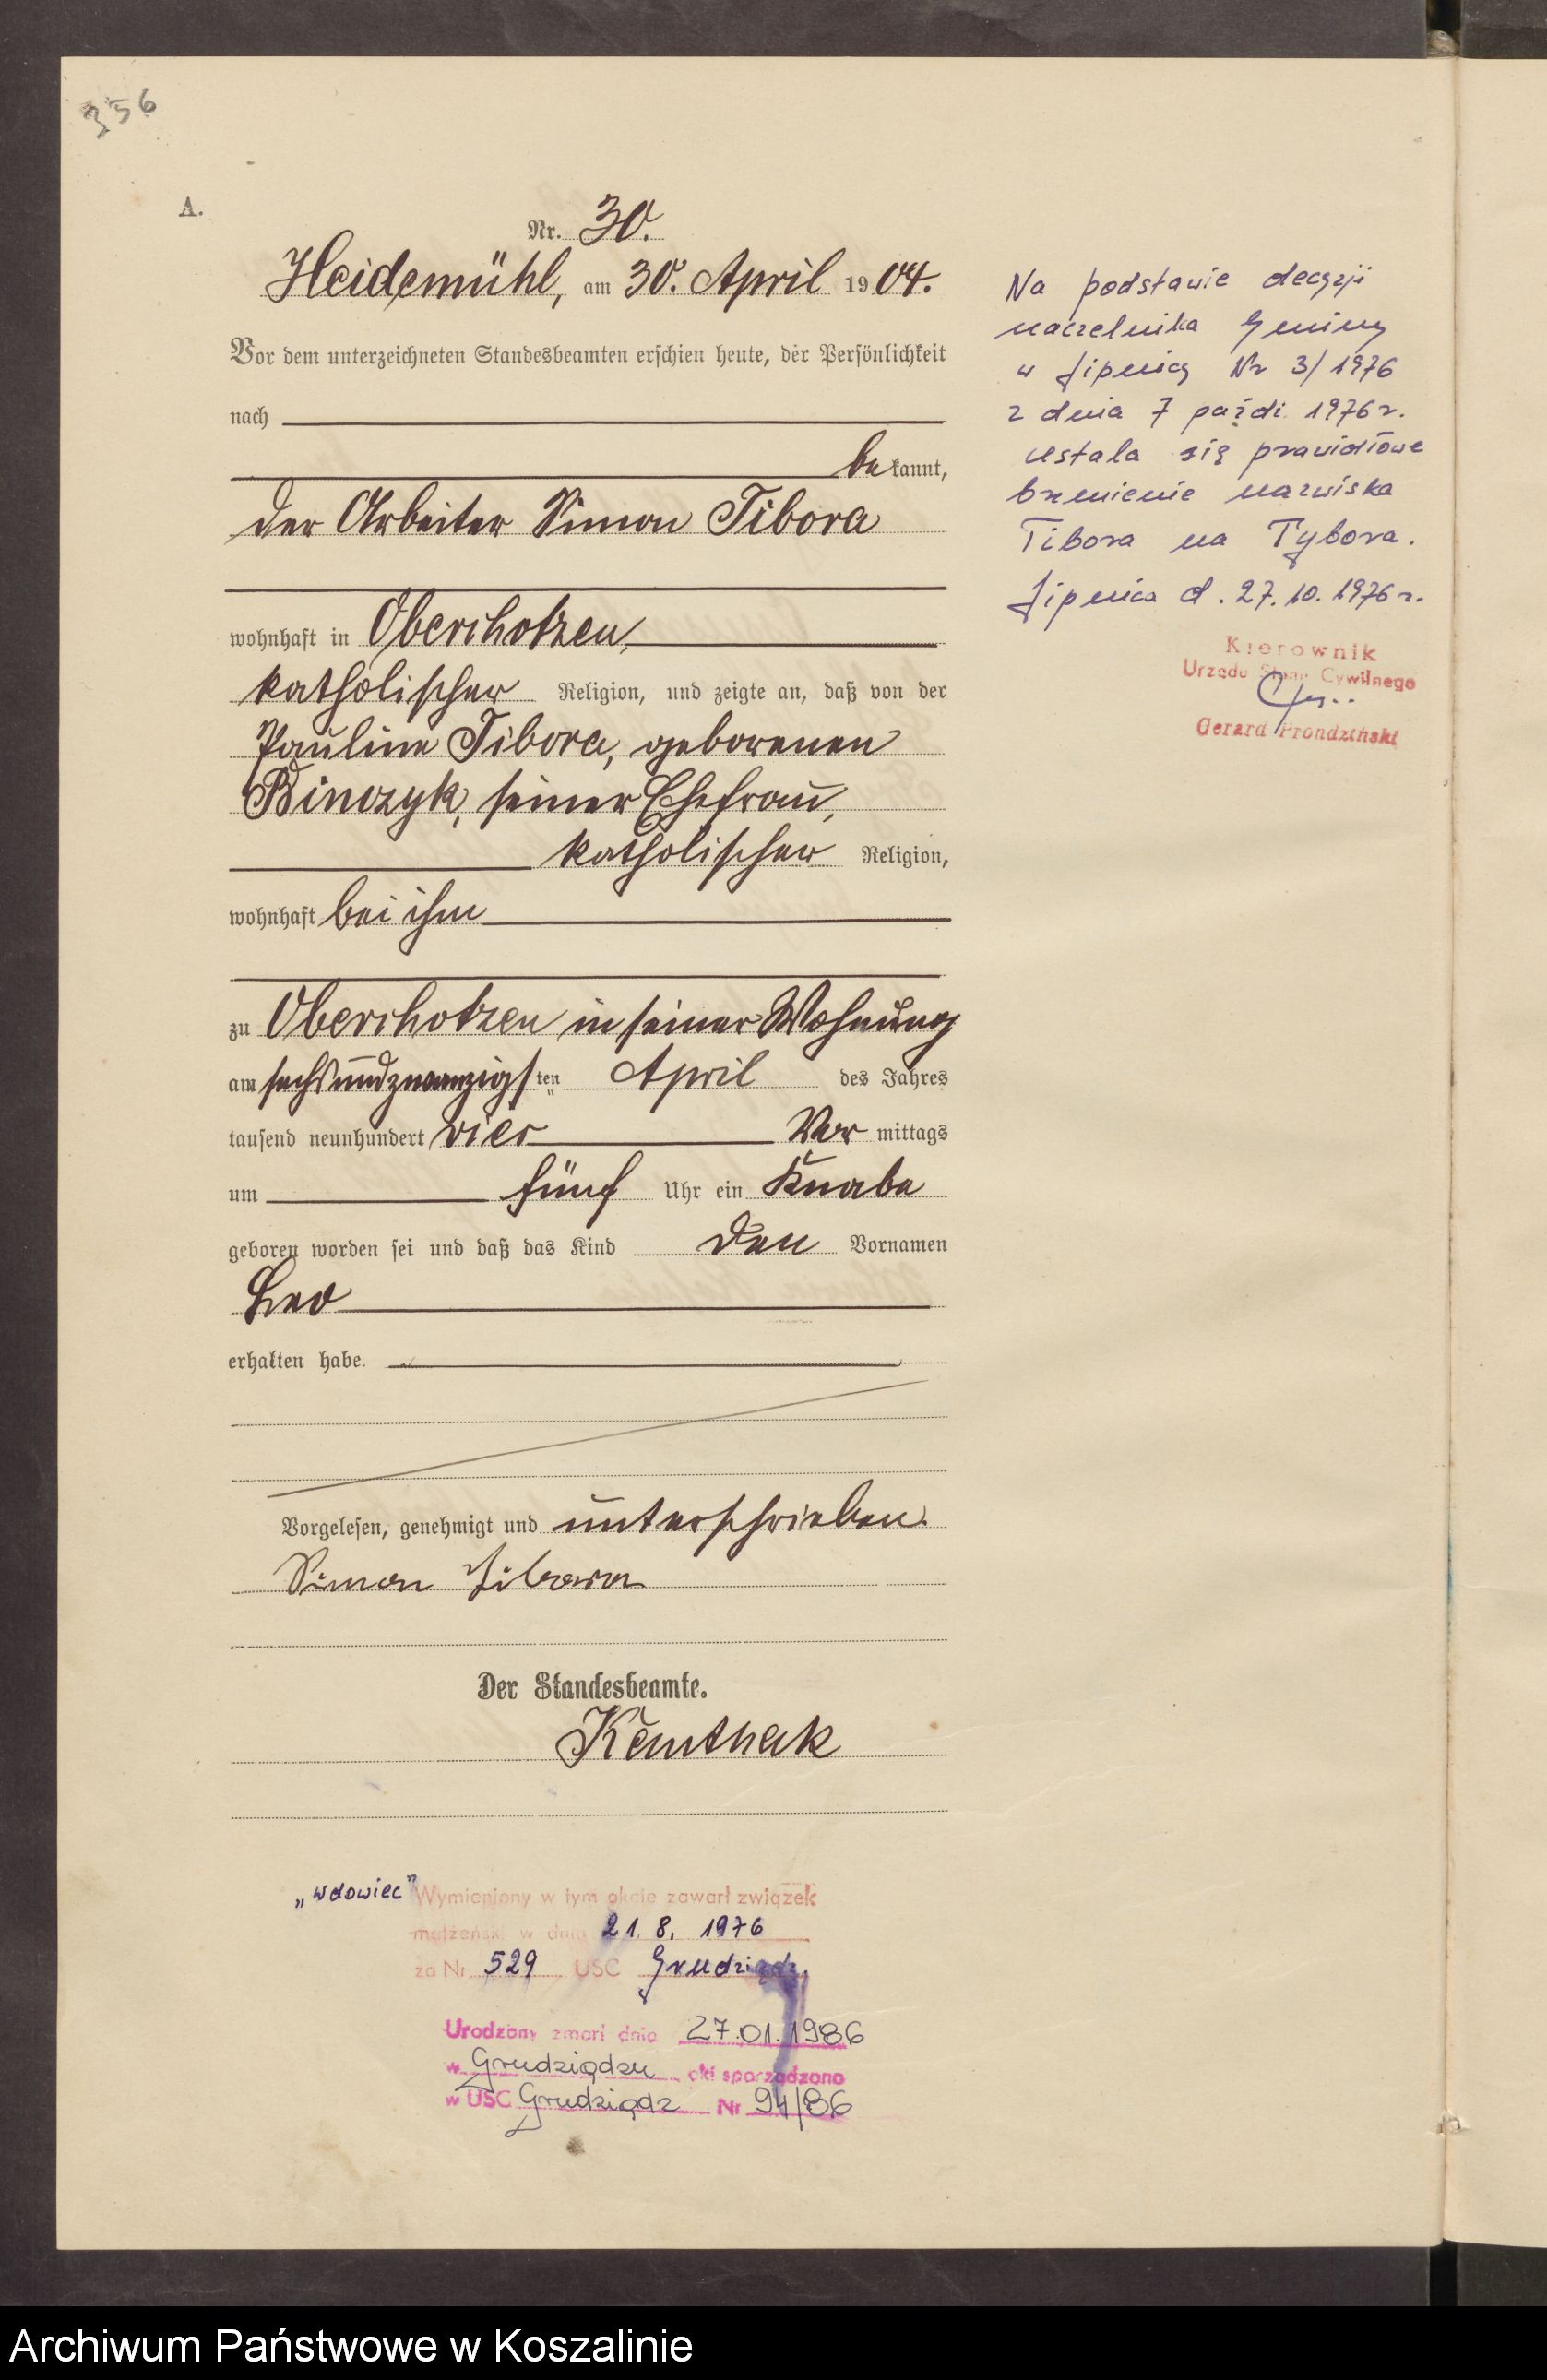 356
A.
Nr. 30.
Heidemühl, am 30. April 1904.
Vor dem unterzeichneten Standesbeamten erschien heute, der Persönlichkeit
nach
bekannt,
der Arbeiter Simon Tibora
wohnhaft in Oberchotzen,
katholischer Religion, und zeigte an, daß von der
Pauline Tibora, geborenen
Binczyk, seiner Ehefrau,
katholischer Religion,
wohnhaft bei ihm
zu Oberchotzen in seiner Wohnung
am sechsundzwanzigsten April des Jahres
tausend neunhundert vier Vormittags
um fünf Uhr ein Knabe
geboren worden sei und daß das Kind den Vornamen
Leo
erhalten habe.
Vorgelesen, genehmigt und unterschrieben.
Simon Tibora
Der Standesbeamte.
"wdowiec" Wymieniony w tym akcie zawarł związek
małżeński w dniu 21. 8. 1976
za Nr 529 USC Grudziądz.
Urodzony zmarł dnia 27.01.1986
w Grudziądzu akt sporządzono
w USC Grudziądz Nr 94/86
Na podstawie decyzji
naczelnika Gminy
w Lipnicy Nr 3/1976
z dnia 7 paźdź. 1976 r.
ustala się prawidłowe
brzmienie nazwiska
Tibora na Tybora.
Lipnica d. 27.10.1976 r.
Kierownik
Urzędu Stanu Cywilnego
Gerard Prondziński
Archiwum Państwowe w Koszalinie